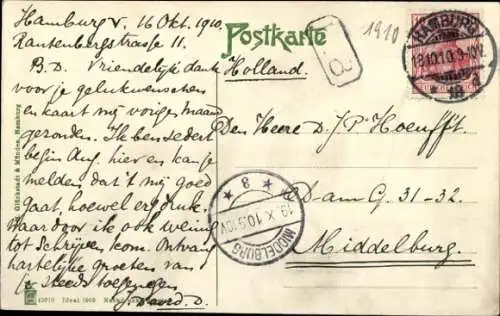 Hamburg v. 16 Okt. 1910.
Rautenbergstrasse 11.
B.D. Vriendelijk dank
voor je gelukwenschen
en kaart mij vorige maand
gezonden. Ik ben sedert
begin Aug. hier en kan je
melden dat 't mij goed
gaat, hoewel erg druk.
Waardoor ik ook weinig
tot schrijven kom. Ontvang
hartelijke groeten van
je steeds toegenegen
Postkarte
Holland.
1910
HAMBURG
18.10.10.9-10V.
Den Heere D. J. P. Hoeufft.
Dam G. 31-32.
Middelburg.
MIDDELBURG
8
Glückstadt & Münden, Hamburg
Ideal 1909